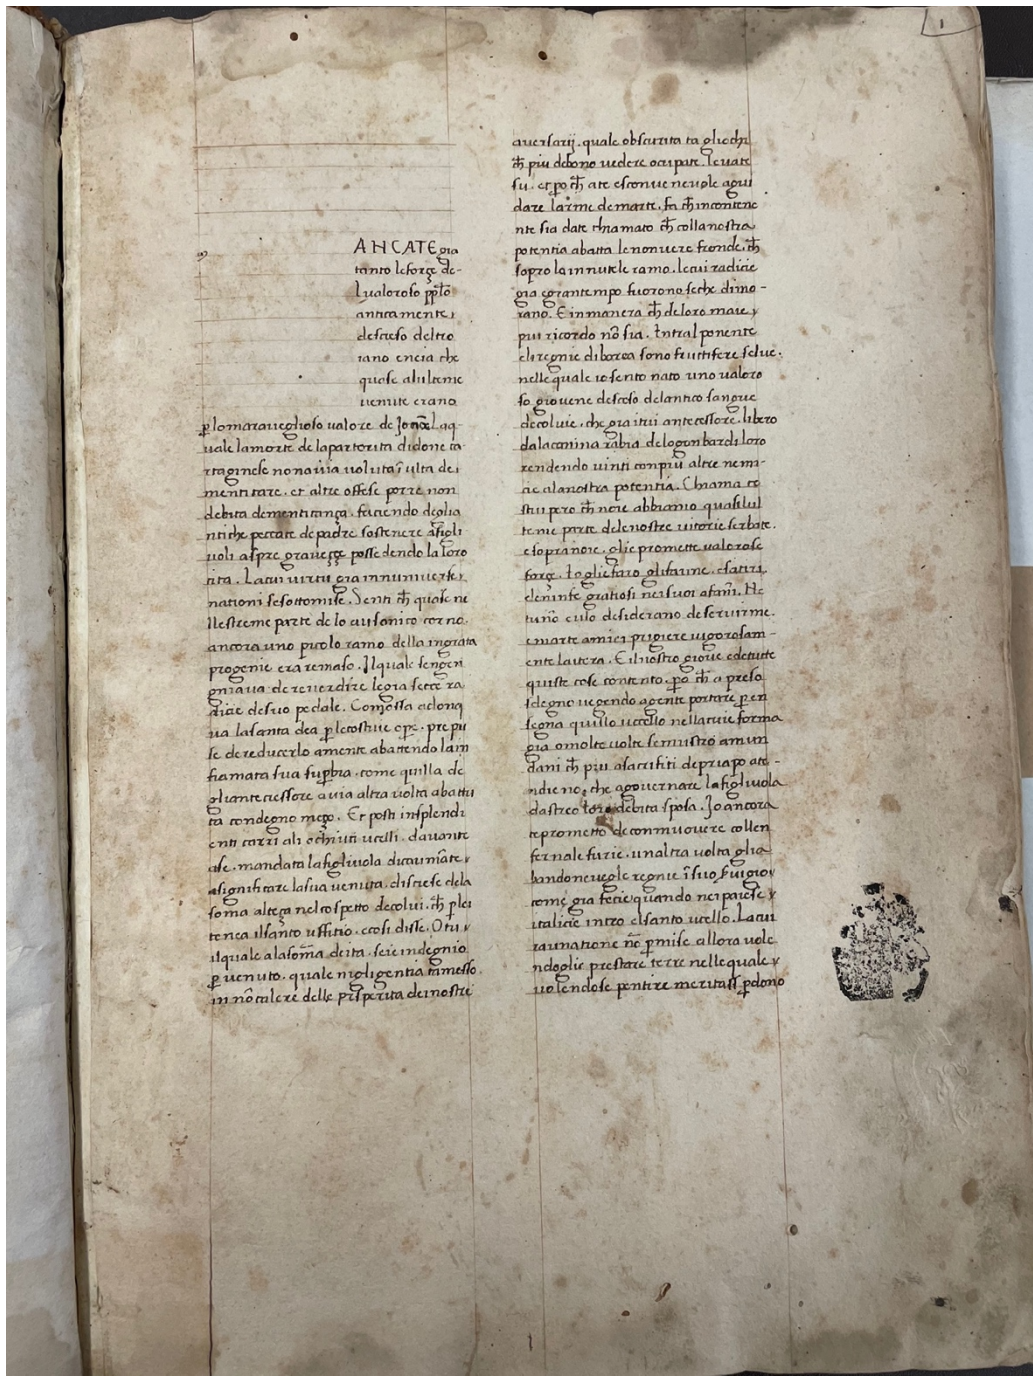 1
ANCATE gia
tanto le forçe de-
l ualoroso pplo
anticamente
desceso del tro
iano encia che
quase alulteme
uenute erano
p lo marauegliosо ualore de Laq-
uale lamorte de la partorita didone ca
rtaginese non auia uoluta ulta de
mentitare. et altre offese porre non
debita dementicança. faciendo deglia
ntiche peccate de padre sostenere afigli
uoli aspre graueçça possedendo la loro
cita. La cui uirtu gia innumiuerse
nationi se sottomise. Senti ch quase ne
llestreme parte de lo ausonico corno.
ancora uno picolo ramo della ingrata
progenie era remaso. Il quale sengen
gniaua de reuerdire le gia secce ra
dicie de suo pedale. Comossa adonq
ua la santa dea p le costuie ope. prepu
se de reducerlo amente abattendo la in
fiamata sua supbia. come quilla de
gliante ciessore auia altra uolta abattu
ta con degno meço. Et posti insplendi
enti carri ali ochiuti ucelli. dauante
ase. mandata la figliuola
asignificare la sua uenuta. discese dela
soma alteça nel cospetto de colui. ch p lei
tenea il santo uffitio. ecosi disse. O tu
il quale ala soma deita. seie indegnio
p uenuto. quale nigligentia tamesso
in no calere delle prosperita dei nostri
auersarij. quale obscurita ta gliochi
ch piu debono uedere ocupate. leuate
su. et po ch ate esconueneuole agui
dare larme de marte. fa ch incontene
nte sia date chiamato ch colla nostra
potentia abatta le non uere fronde. ch
sopro la innutele ramo. le cui radicie
gia e gran tempo fuorono seche dimo-
rano. E in manera ch de loro maie
piu ricordo no sia. Intral ponente
eli regnie di borea sono fructifere selue.
nelle quale io sento nato uno ualoro
so giouene desceso delantico sangue
de coluie. che gia itrui antecessore. libero
dala canina rabia de logonbardi loro
rendendo uinti con piu altre nemi-
cie ala nostra potentia. Chiama co
stui pero ch noie abbiamo quasi lul
teme parte dele nostre uitorie serbate.
e sopra noie. glie promette ualorose
força. Io gli faro gli faune. e satiri
e le ninfe gratiosi nei suoi afani. Ne
tuno e ulo desiderano de seruirme.
e marte amici prigiere uigorosam-
ente lauera. E il nostro gioue e de tutte
quiste cose contento. po ch a preso
sdegno uegendo a gente portare p en
segna quillo uccello nella cuie forma
gia o molte uolte se mustro amun
dani ch piu a sacrifiti de priapo ate-
ndieno. che a gouernare la figliuola
dastreo debita sposa. Io ancora
te prometto de commuouere collen
fernale furie. unaltra uolta glia
bandoneuegle regnie i suo
come gia fecie quando nei paiese
italicie intro el santo ucello. La cui
raunatione no pmise allora uole
ndoglie prestare terre nelle quale
uolendose pentire meritass pdono